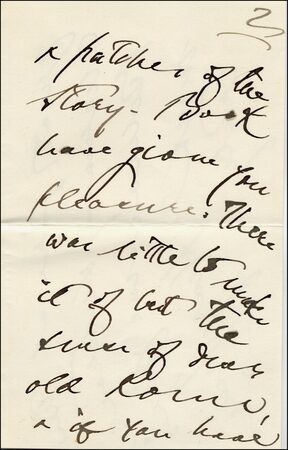 2
& patches of the
Story-Book
have given you
pleasure. There
was little to make
it of but the
sense of dear
old Rome,
& if you have